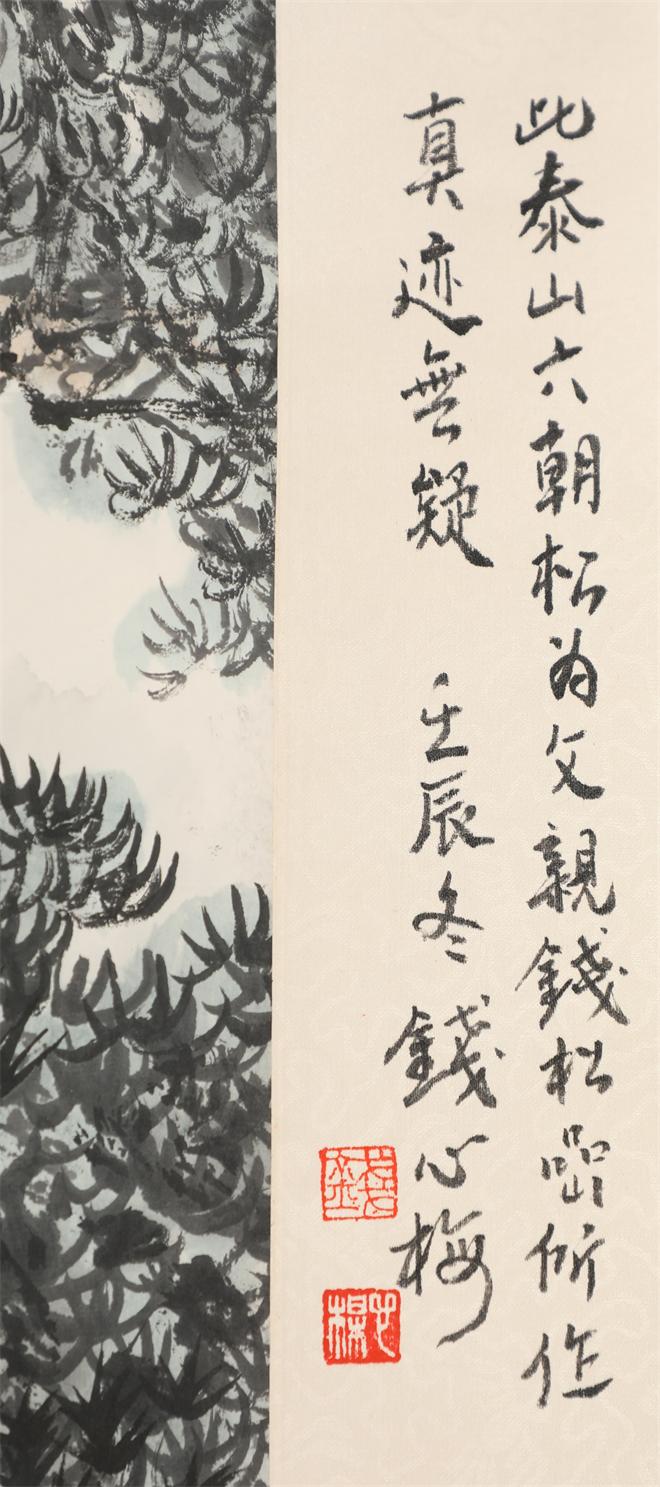 此泰山六朝松为父親錢松嵒所作
真迹無疑 壬辰冬 錢心梅
錢
心楳